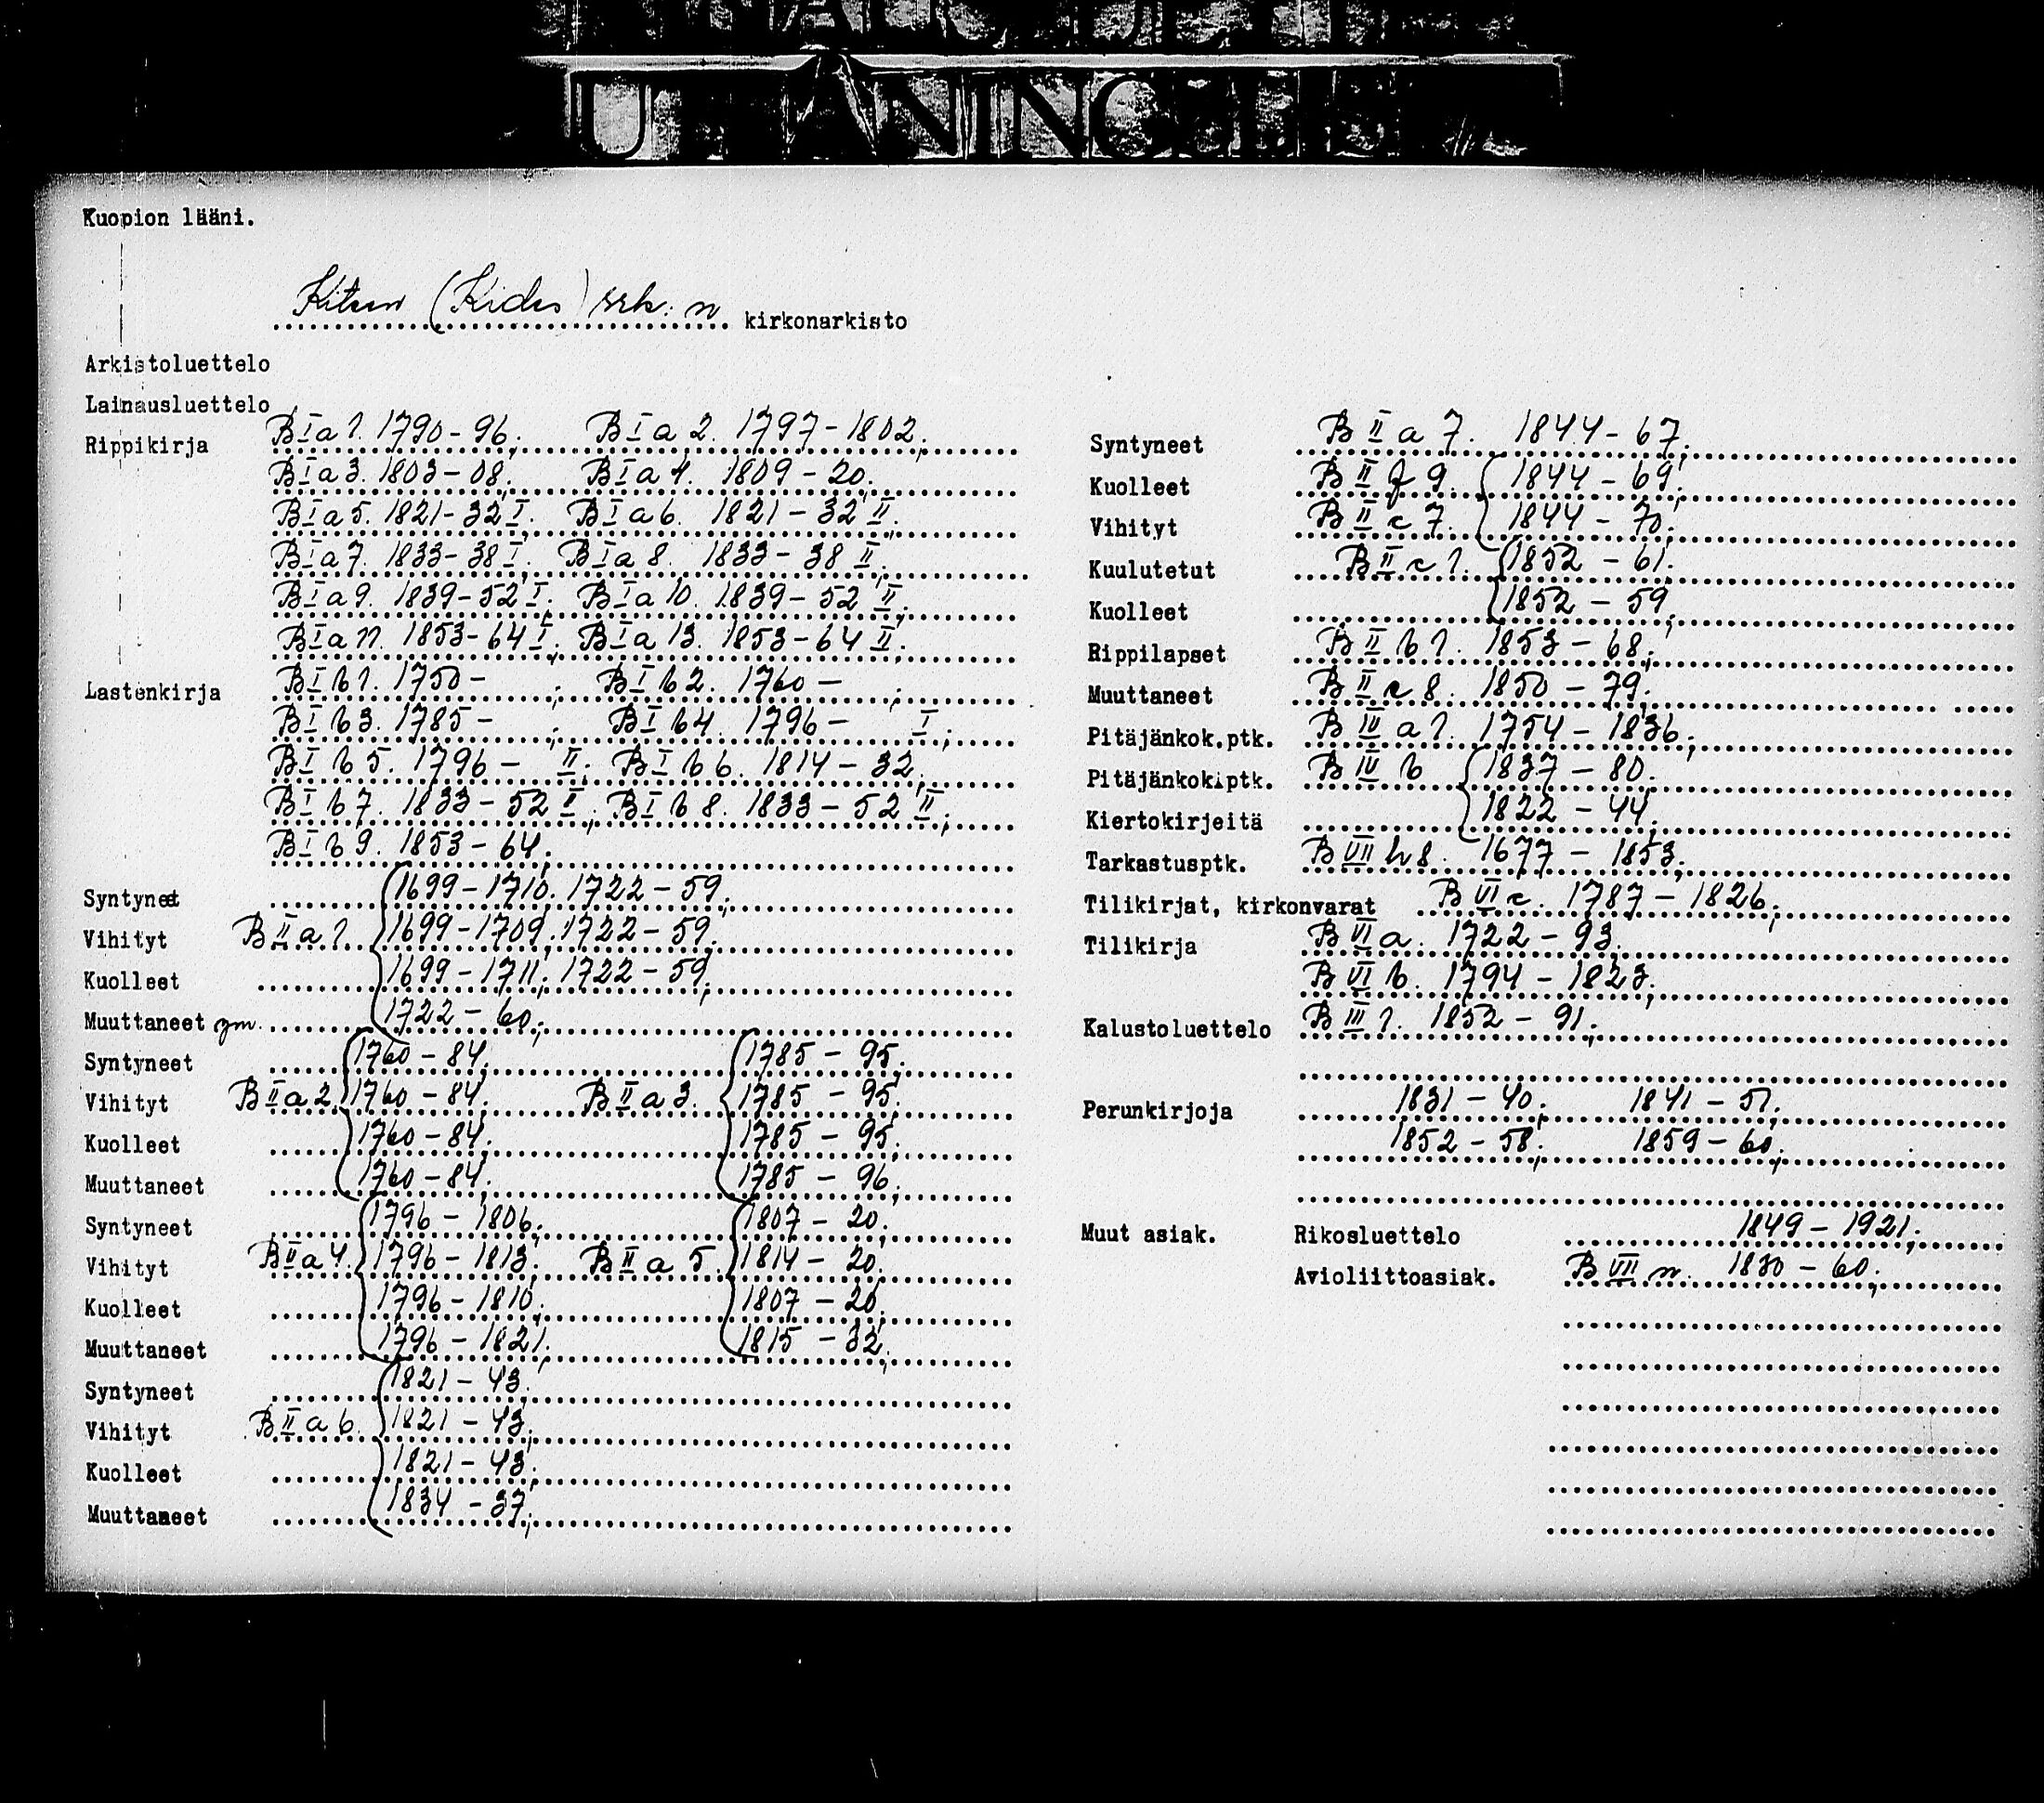 Kuopion lääni.
Kiteen (Kides) srk:n kirkonarkisto
Arkistoluettelo
Lainausluettelo
Rippikirja B I a 1. 1790-96; B I a 2. 1797-1802;
B I a 3. 1803-08; B I a 4. 1809-20;
B I a 5. 1821-32 I; B I a 6. 1821-32 II;
B I a 7. 1833-38 I; B I a 8. 1833-38 II;
B I a 9. 1839-52 I; B I a 10. 1839-52 II;
B I a 11. 1853-64 I; B I a 13. 1853-64 II;
Lastenkirja B I b 1. 1750- ; B I b 2. 1760- ;
B I b 3. 1785- ; B I b 4. 1796- I;
B I b 5. 1796- II; B I b 6. 1814-32;
B I b 7. 1833-52 I; B I b 8. 1833-52 II;
B I b 9. 1853-64;
Syntyneet 1699-1710; 1722-59;
Vihityt B II a 1. 1699-1709; 1722-59;
Kuolleet 1699-1711; 1722-59;
Muuttaneet ym. 1722-60;
Syntyneet 1760-84; 1785-95;
Vihityt B II a 2. 1760-84; B II a 3. 1785-95;
Kuolleet 1760-84; 1785-95;
Muuttaneet 1760-84; 1785-96;
Syntyneet 1796-1806; 1807-20;
Vihityt B II a 4. 1796-1813; B II a 5. 1814-20;
Kuolleet 1796-1810; 1807-20;
Muuttaneet 1796-1821; 1815-32;
Syntyneet 1821-43;
Vihityt B II a 6. 1821-43;
Kuolleet 1821-43;
Muuttaneet 1834-37;
Syntyneet B II a 7. 1844-67;
Kuolleet B II f 9. 1844-69;
Vihityt B II c 7. 1844-70;
Kuulutetut B II c 1. 1852-61;
Kuolleet 1852-59;
Rippilapset B II b 1. 1853-68;
Muuttaneet B II e 8. 1850-79;
Pitäjänkok.ptk. B IV a 1. 1754-1836;
Pitäjänkok.ptk. B IV b 1837-80;
Kiertokirjeitä 1822-44;
Tarkastusptk. B VII h 8. 1677-1853;
Tilikirjat, kirkonvarat B VI c. 1787-1826;
Tilikirja B VI a. 1722-93;
B VI b. 1794-1823;
Kalustoluettelo B III 1. 1852-91;
Perunkirjoja 1831-40; 1841-51;
1852-58; 1859-60;
Muut asiak. Rikosluettelo 1849-1921;
Avioliittoasiak. B VII n. 1830-60;